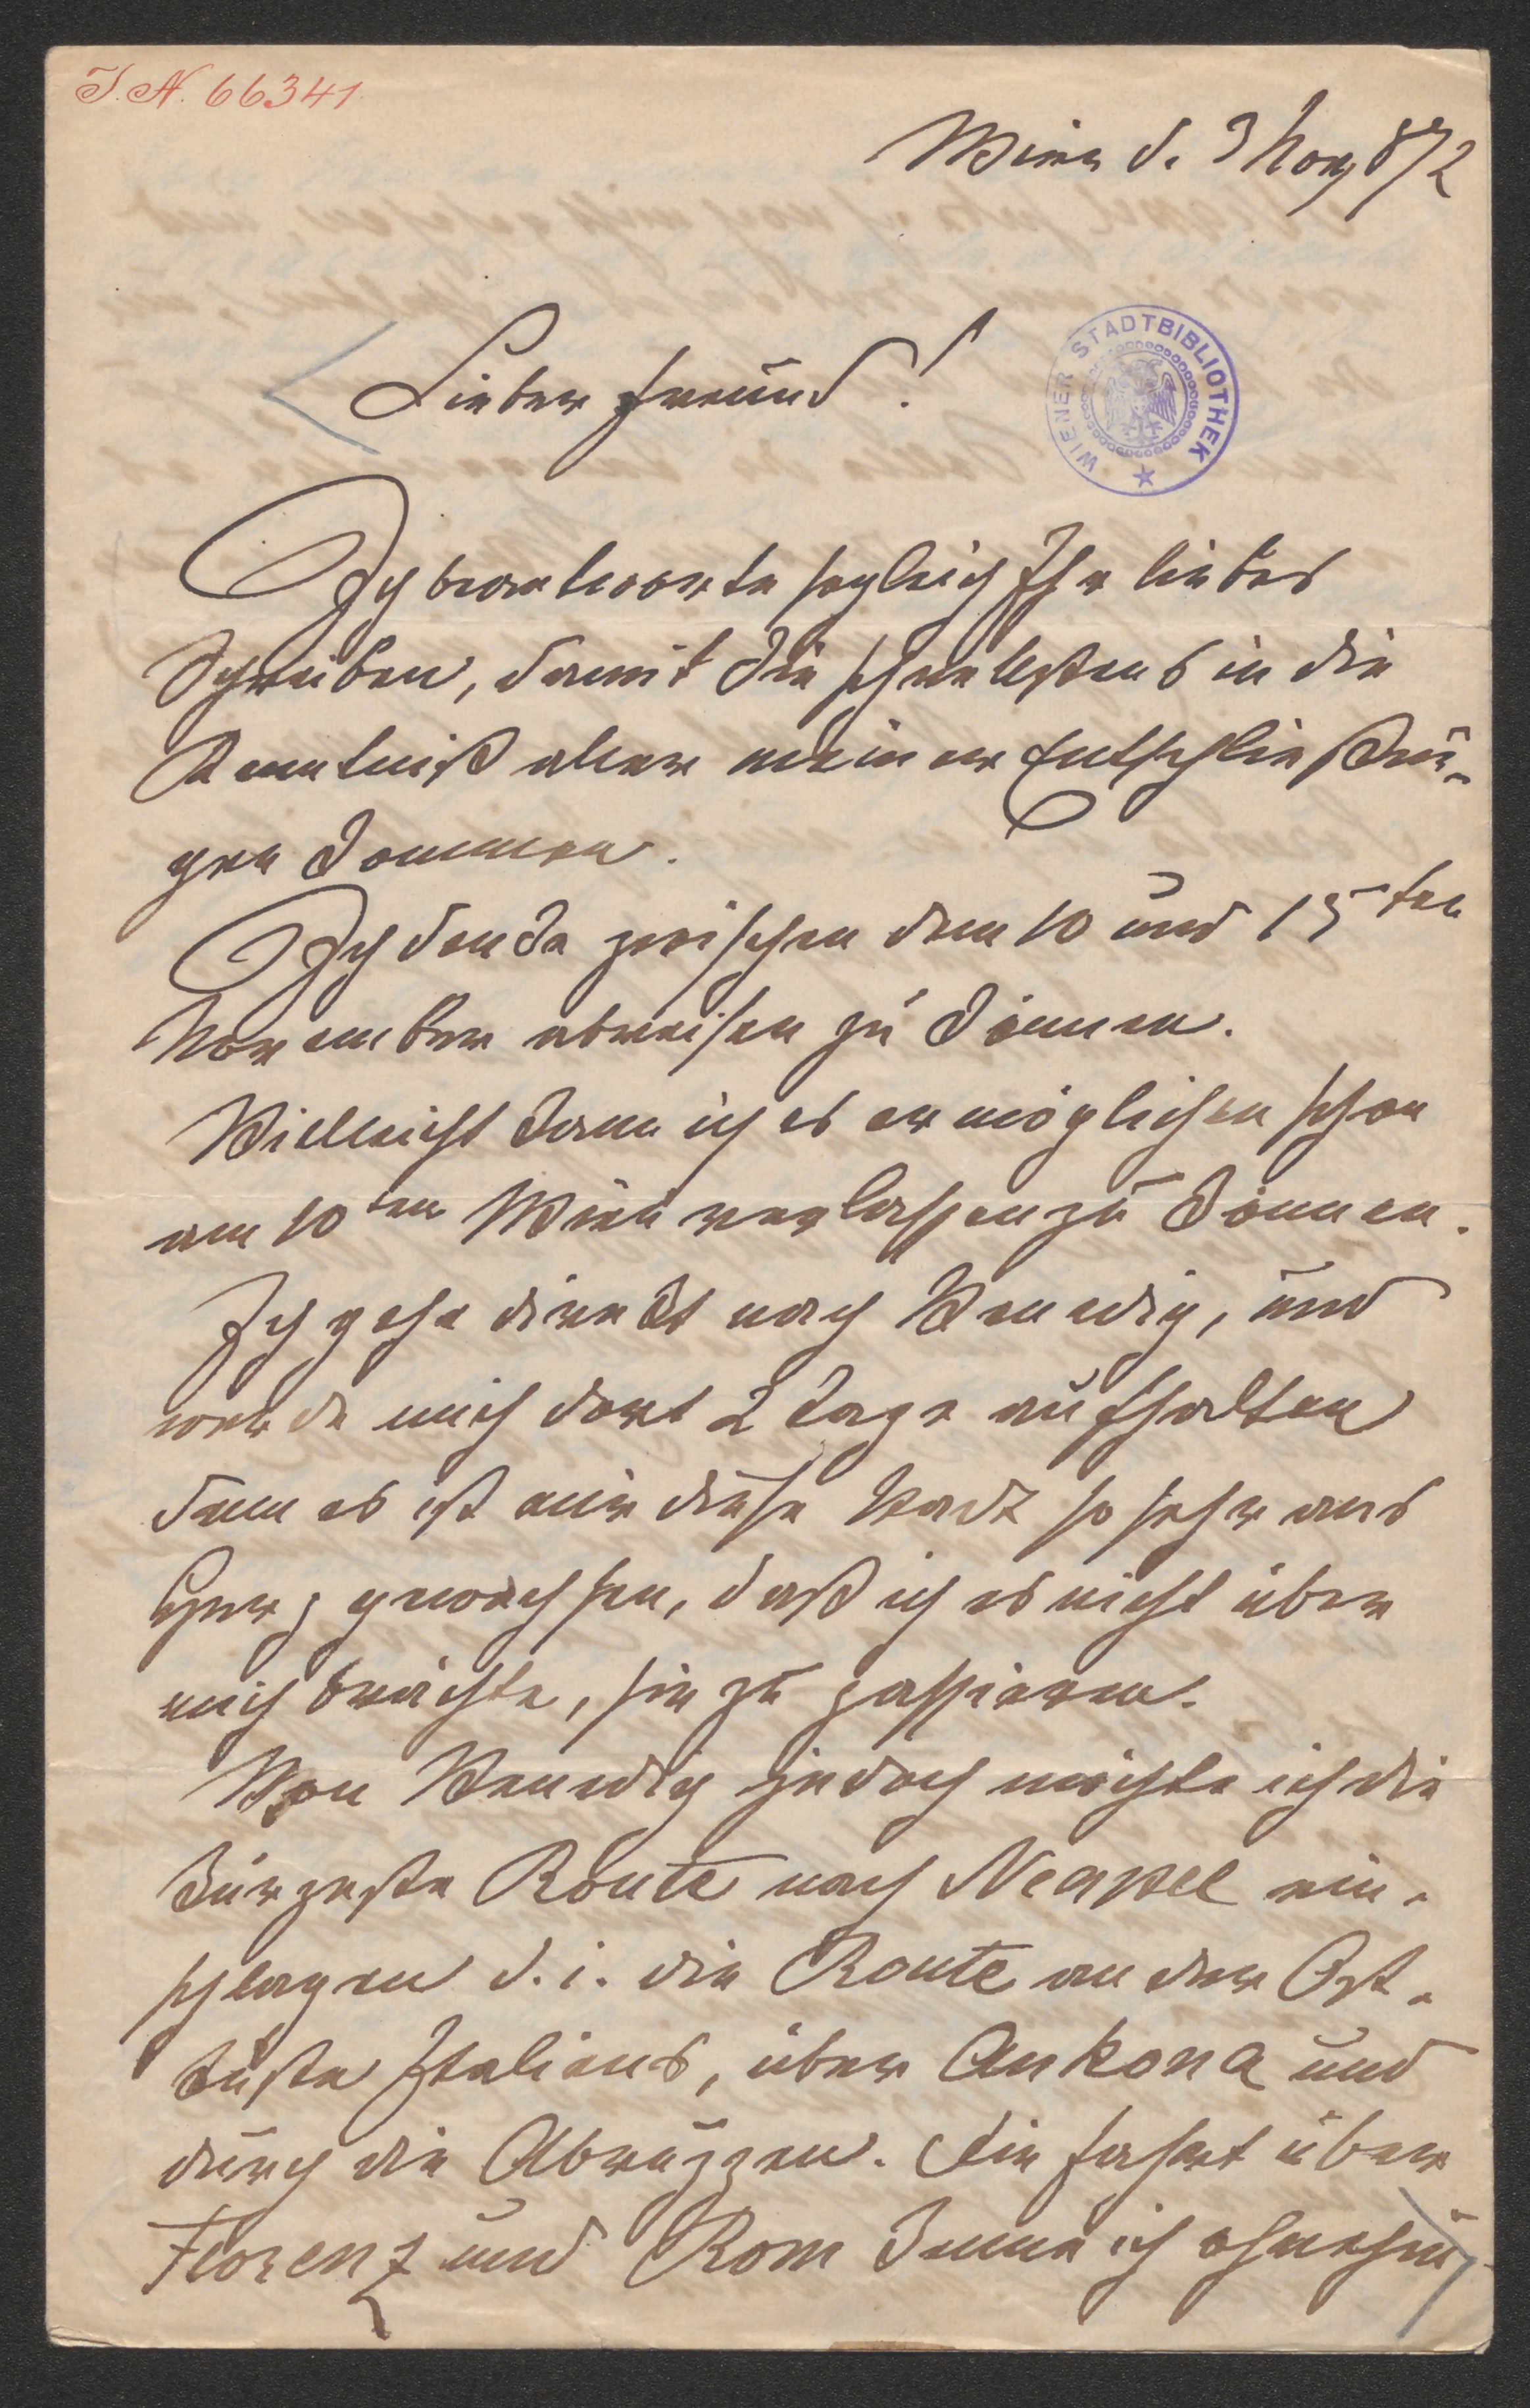 I. N. 66341.
Wien d. 3 Nov 872
Lieber Freund!
WIENER STADTBIBLIOTHEK
Ich beantworte sogleich Ihr liebes
Schreiben, damit Sie schnellstens in die
Kenntniß aller meiner Entschließun-
gen kommen.
Ich denke zwischen dem 10 und 15ten
November abreisen zu können.
Vielleicht kann ich es ermöglichen schon
am 10ten Wien verlassen zu können.
Ich gehe direkt nach Venedig, und
werde mich dort 2 Tage aufhalten
denn es ist mir diese Stadt so sehr ans
Herz gewachsen, daß ich es nicht über
mich brächte, sie zu passieren.
Von Venedig jedoch möchte ich die
kürzeste Route nach Neapel ein-
schlagen d. i. die Route an der Ost-
küste Italiens, über Ankona und
durch die Abruzzen. Die Fahrt über
Florenz und Rom kenne ich ohnehin